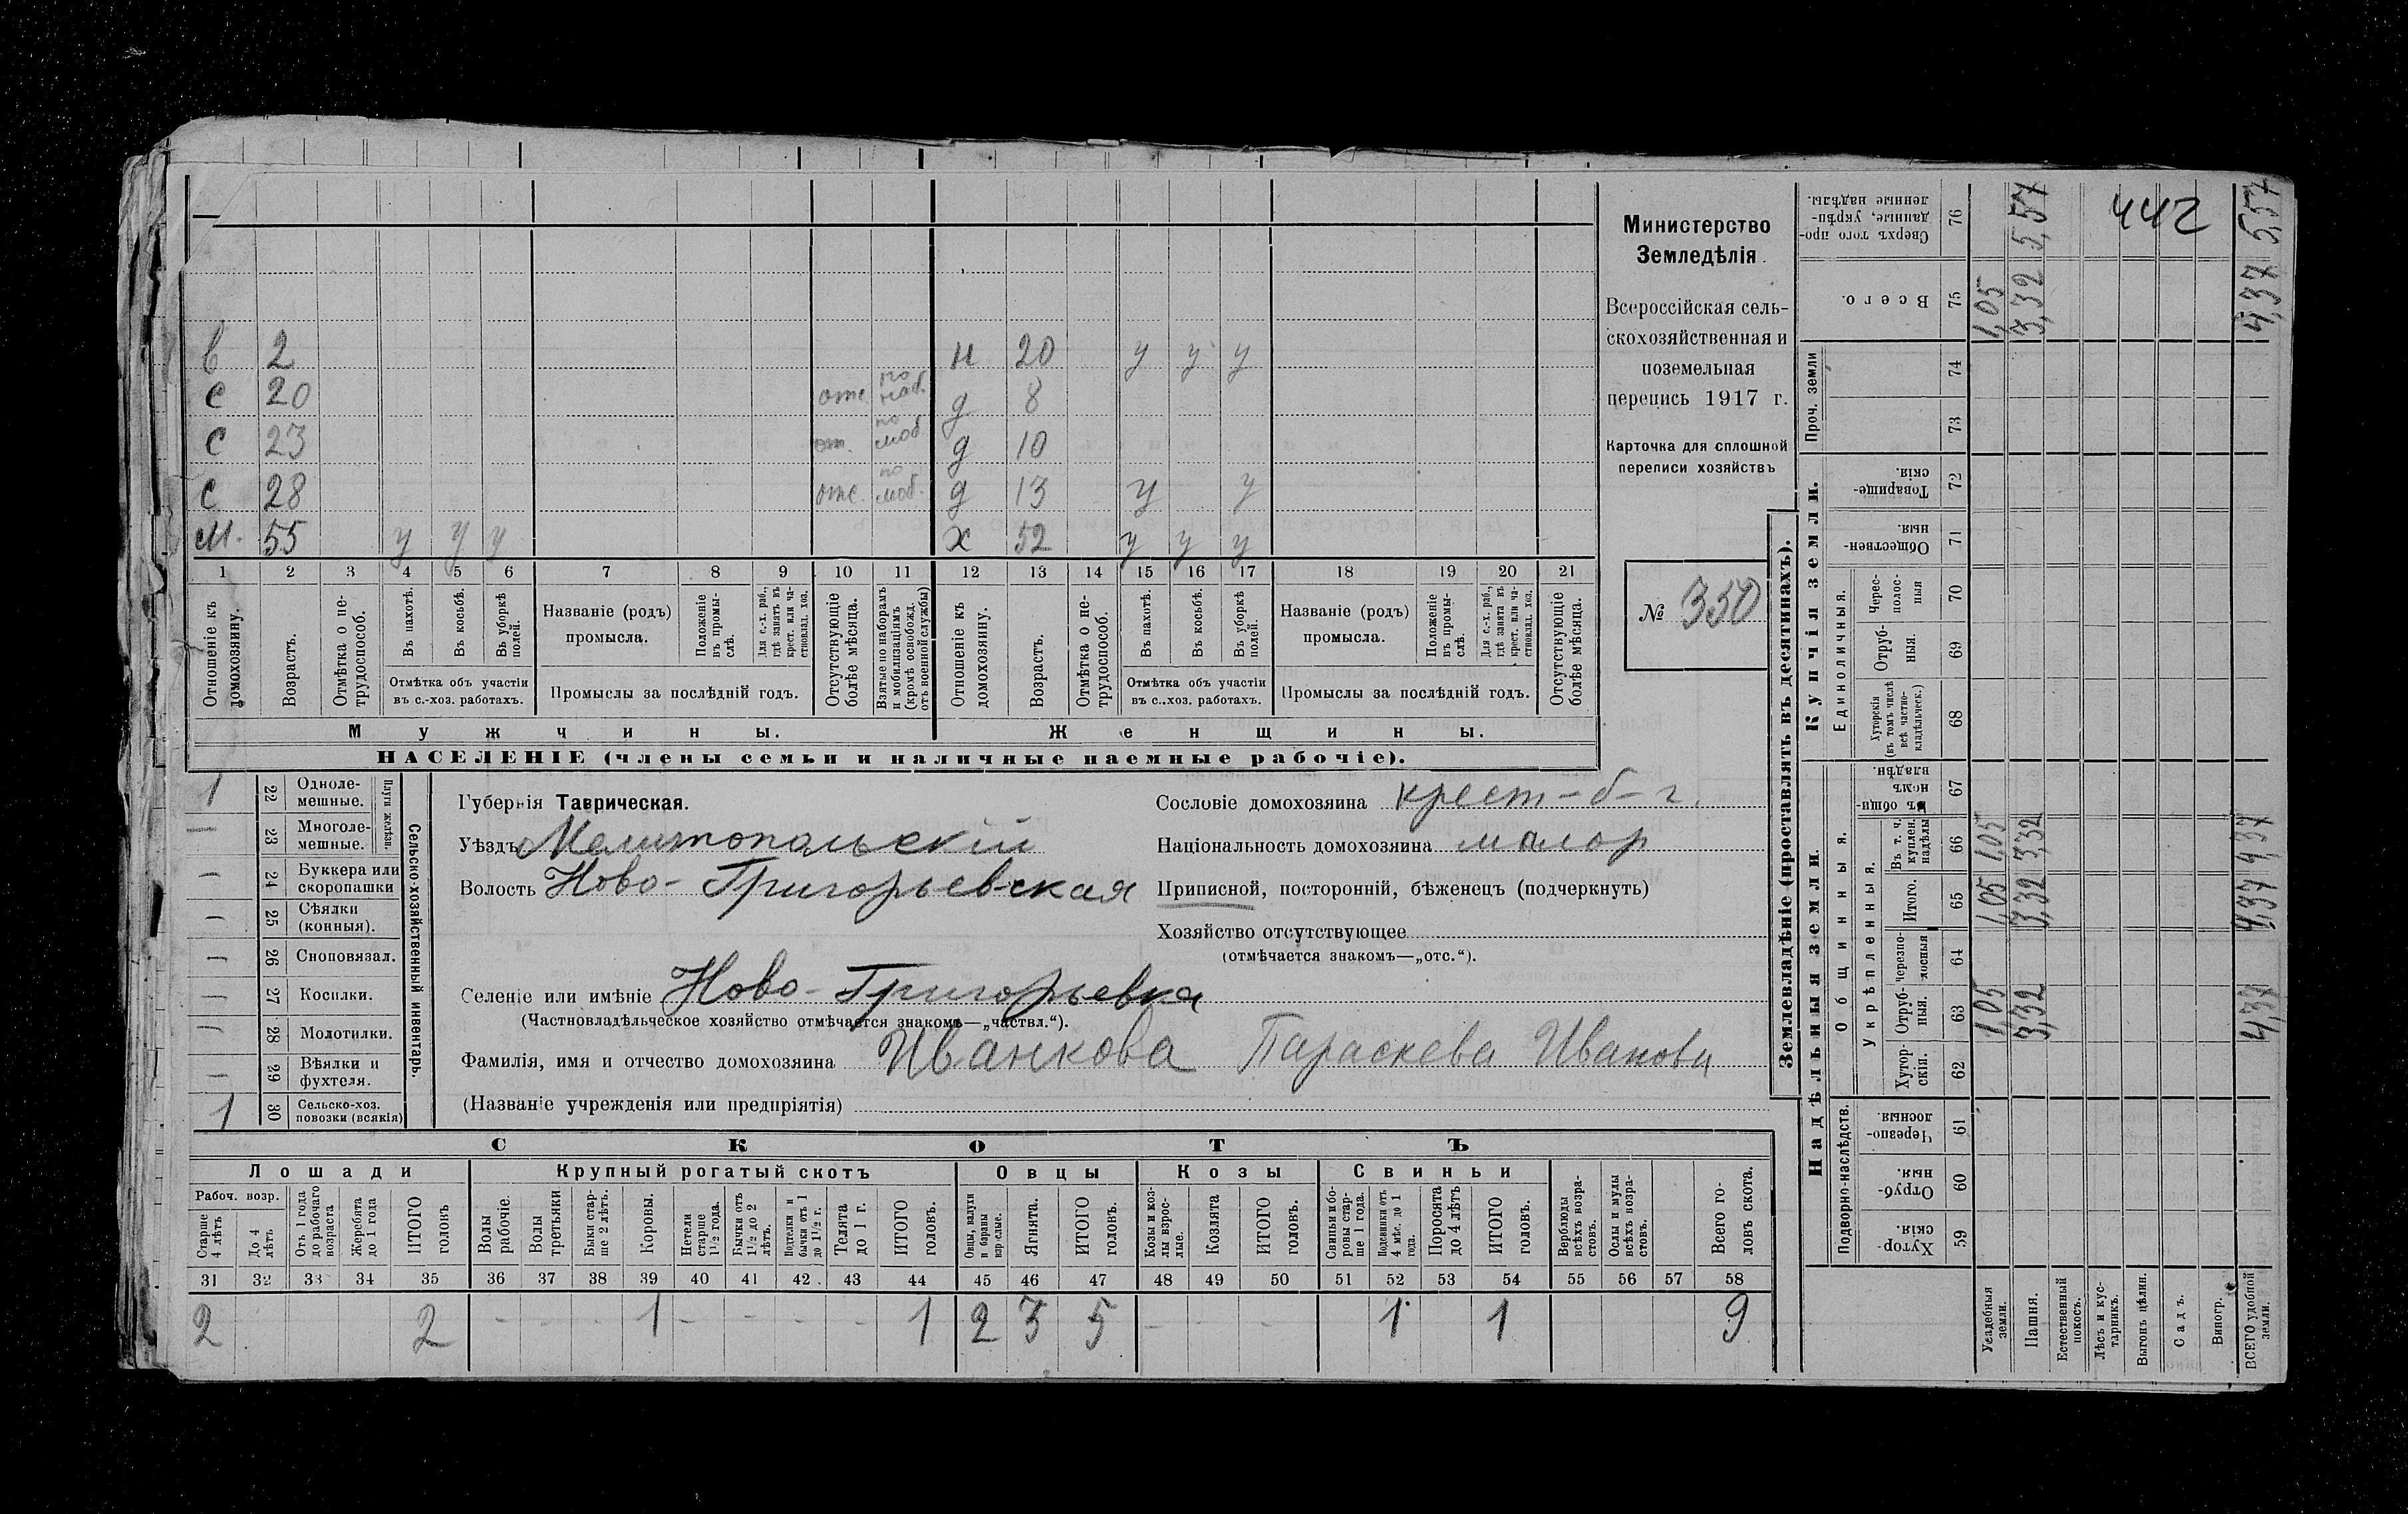 442
Министерство
Земледѣлія.
Всероссійская сель-
скохозяйственная и
поземельная
перепись 1917 г.
Карточка для сплошной
переписи хозяйствъ
№ 350
в 2 н 20 у у у
с 20 отс по наб. д 8
с 23 от. по моб. д 10
с 28 отс. по моб. д 13 у у
М. 55 у у у х 52 у у у
1 2 3 4 5 6 7 8 9 10 11 12 13 14 15 16 17 18 19 20 21
Отношеніе къ домохозяину.
Возрастъ.
Отмѣтка о не-трудоспособ.
Въ пахотѣ.
Въ косьбѣ.
Въ уборкѣ полей.
Отмѣтка объ участіи
въ с.-хоз. работахъ.
Названіе (родъ)
промысла.
Положеніе въ промы-слѣ.
Для с.-х. раб., гдѣ занятъ въ крест. или ча-стновлад. хоз.
Промыслы за послѣдній годъ.
Отсутствующіе болѣе мѣсяца.
Взятые по наборамъ и мобилизаціямъ (кромѣ освобожд. отъ военной службы)
Отношеніе къ домохозяину.
Возрастъ.
Отмѣтка о не-трудоспособ.
Въ пахотѣ.
Въ косьбѣ.
Въ уборкѣ полей.
Отмѣтка объ участіи
въ с.-хоз. работахъ.
Названіе (родъ)
промысла.
Положеніе въ промы-слѣ.
Для с.-х. раб., гдѣ занята въ крест. или ча-стновлад. хоз.
Промыслы за послѣдній годъ.
Отсутствующіе болѣе мѣсяца.
Мужчины. Женщины.
НАСЕЛЕНІЕ (члены семьи и наличные наемные рабочіе).
1 22 Однолемешные.
— 23 Многолемешные.
Плуги желѣзн.
— 24 Буккера или скоропашки
— 25 Сѣялки (конныя).
— 26 Сноповязал.
— 27 Косилки.
— 28 Молотилки.
— 29 Вѣялки и фухтеля.
1 30 Сельско-хоз. повозки (всякія)
Сельско-хозяйственный инвентарь.
Губернія Таврическая.
Уѣздъ Мелитопольскій
Волость Ново-Григорьевская
Селеніе или имѣніе Ново-Григорьевка
(Частновладѣльческое хозяйство отмѣчается знакомъ—„частвл.“).
Фамилія, имя и отчество домохозяина Иванкова Параскева Иванови
(Названіе учрежденія или предпріятія)
Сословіе домохозяина крест-б-г.
Національность домохозяина малор
Приписной, посторонній, бѣженецъ (подчеркнуть)
Хозяйство отсутствующее
(отмѣчается знакомъ—„отс.“).
СКОТЪ
Лошади Крупный рогатый скотъ Овцы Козы Свиньи
Рабоч. возр.
Старше 4 лѣтъ
До 4 лѣтъ
Отъ 1 года до рабочаго возраста
Жеребята до 1 года
ИТОГО головъ
Волы рабочіе.
Волы третьяки.
Быки стар-ше 2 лѣтъ.
Коровы.
Нетели старше 1½ года.
Бычки отъ 1½ до 2 лѣтъ.
Подтелки и бычки отъ 1 до 1½ г.
Телята до 1 г.
ИТОГО головъ.
Овцы, валухи и бараны взрослые.
Ягнята.
ИТОГО головъ.
Козы и коз-лы взрос-лые.
Козлята
ИТОГО головъ.
Свиньи и бо-ровы стар-ше 1 года.
Подсвинки отъ 4 мѣс. до 1 года.
Поросята до 4 лѣтъ
ИТОГО головъ.
Верблюды всѣхъ возра-стовъ.
Ослы и мулы всѣхъ возра-стовъ.
Всего го-ловъ скота.
31 32 33 34 35 36 37 38 39 40 41 42 43 44 45 46 47 48 49 50 51 52 53 54 55 56 57 58
2 2 - - - 1 - - - - 1 2 3 5 - - - 1 1 9
Землевладѣніе (проставлять въ десятинахъ).
Надѣльныя земли.
Купчія земли.
Проч. земли
Подворно-наслѣдств.
Общинныя.
Укрѣпленныя.
Единоличныя.
Хутор-скія. 59
Отруб-ныя. 60
Черезпо-лосныя. 61
Хутор-скія. 62
Отруб-ныя. 63
Черезпо-лосныя 64
Итого. 65
Въ т. ч. куплен. надѣлы 66
Въ общи-номъ владѣн. 67
Хуторскія (въ томъ числѣ всѣ частно-владѣльческ.) 68
Отруб-ныя. 69
Черес-полос-ныя 70
Обществен-ныя. 71
Товарище-скія. 72
73
74
Всего. 75
Сверхъ того про-данные, укрѣп-ленные надѣлы. 76
Усадебныя земли. 1,05 1,05 1,05 1,05
Пашня. 3,32 3,32 3,32 3,32 5,57
Естественный покосъ.
Лѣсъ и кус-тарникъ.
Выгонъ цѣлин.
Садъ.
Виногр.
ВСЕГО удобной земли. 4,37 4,37 4,37 4,37 5,57